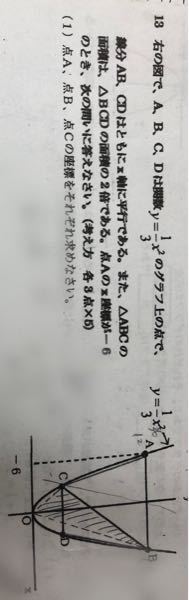 13 右の図で、A、B、C、Dは関数y=1/3x²のグラフ上の点で、
線分AB、CDはともにx軸に平行である。また、△ABCの
面積は、△BCDの面積の2倍である。点Aのx座標が−6
のとき、次の問いに答えなさい。(考え方 各3点×5)
(1) 点A、点B、点Cの座標をそれぞれ求めなさい。
y=1/3x²
A
12
B
C
D
−6
O
x